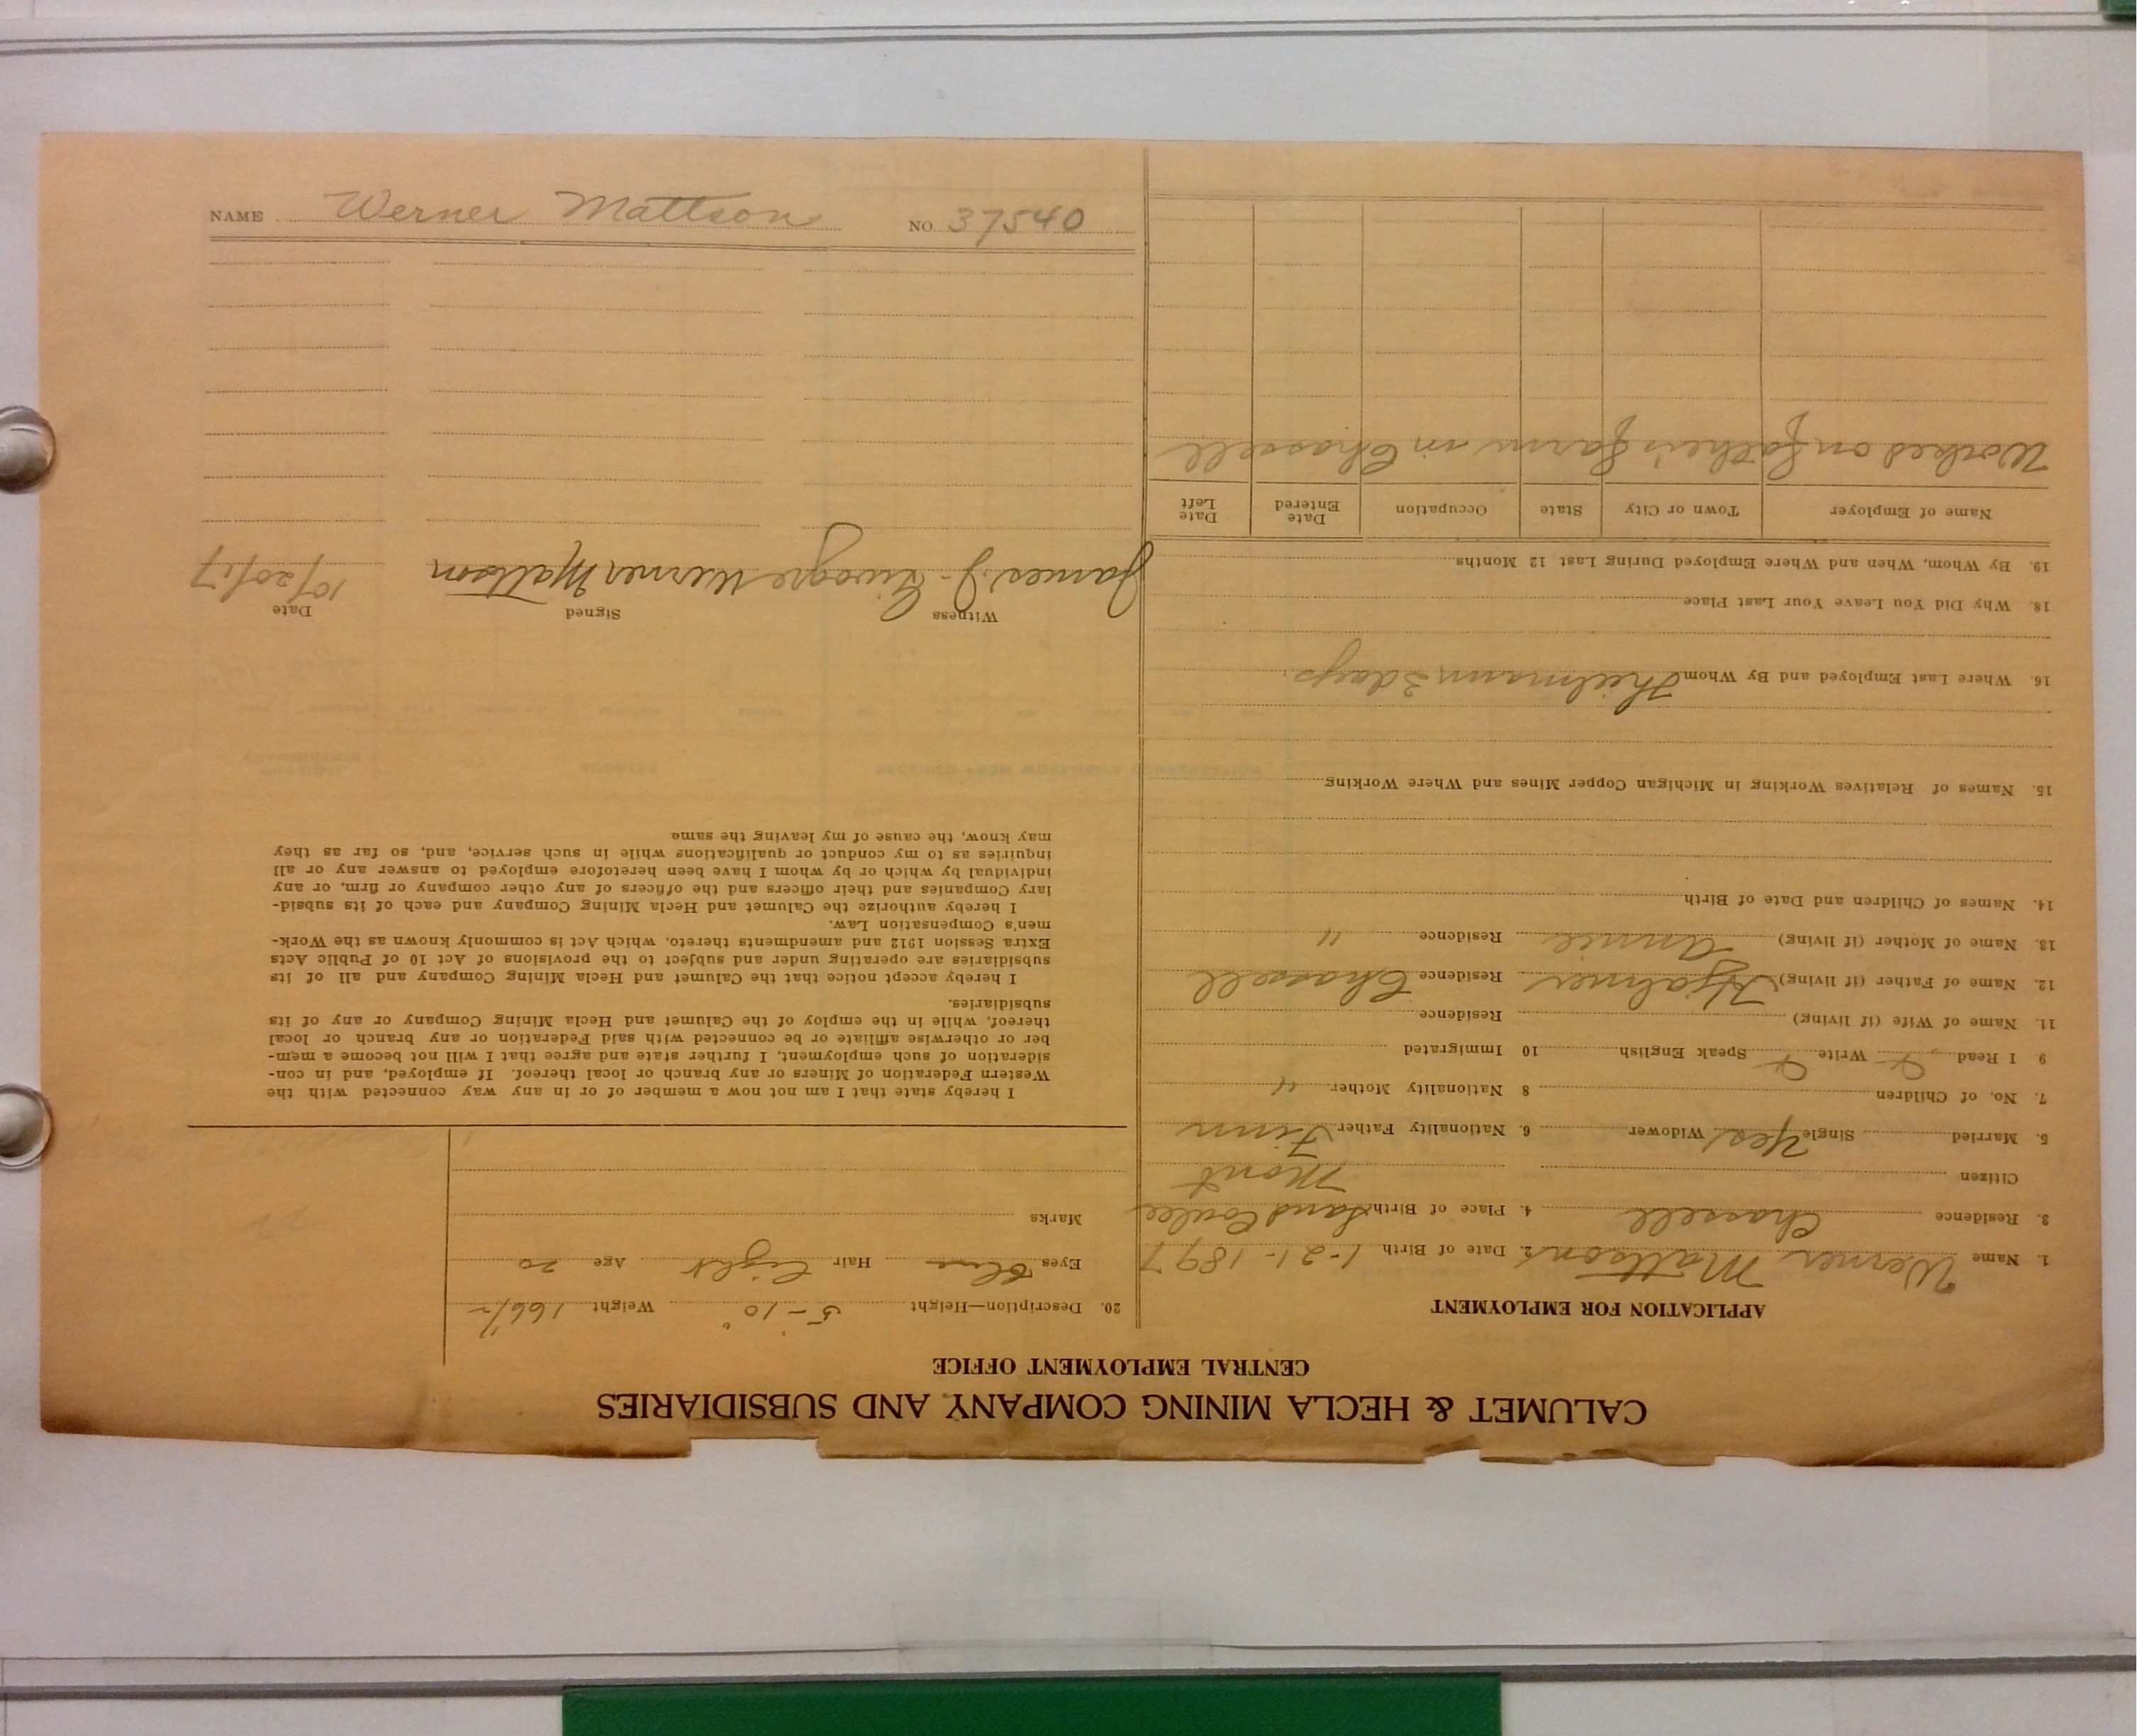 CALUMET & HECLA MINING COMPANY AND SUBSIDIARIES
CENTRAL EMPLOYMENT OFFICE
APPLICATION FOR EMPLOYMENT
1. Name Werner Mattson 2. Date of Birth 1-21-1897
3. Residence Chassell 4. Place of Birth Sand Coulee
Citizen Mont
5. Married Single Yes Widower 6. Nationality Father Finn
7. No. of Children 8 Nationality Mother "
9 I Read Write Speak English 10 Immigrated
11. Name of Wife (if living) Residence
12. Name of Father (if living) Hjalmer Residence Chassell
13. Name of Mother (if living) Annie Residence "
14. Names of Children and Date of Birth
15. Names of Relatives Working in Michigan Copper Mines and Where Working
16. Where Last Employed and By Whom Thielmann 3 days.
18. Why Did You Leave Your Last Place
19. By Whom, When and Where Employed During Last 12 Months
Name of Employer Town or City State Occupation Date Entered Date Left
Worked on father's farm in Chassell
20. Description—Height 5-10" Weight 166½
Eyes Blue Hair Light Age 20
Marks
I hereby state that I am not now a member of or in any way connected with the
Western Federation of Miners or any branch or local thereof. If employed, and in con-
sideration of such employment, I further state and agree that I will not become a mem-
ber or otherwise affiliate or be connected with said Federation or any branch or local
thereof, while in the employ of the Calumet and Hecla Mining Company or any of its
subsidiaries.
I hereby accept notice that the Calumet and Hecla Mining Company and all of its
subsidiaries are operating under and subject to the provisions of Act 10 of Public Acts
Extra Session 1912 and amendments thereto. which Act is commonly known as the Work-
men's Compensation Law.
I hereby authorize the Calumet and Hecla Mining Company and each of its subsid-
iary Companies and their officers and the officers of any other company or firm, or any
individual by which or by whom I have been heretofore employed to answer any or all
inquiries as to my conduct or qualifications while in such service, and, so far as they
may know, the cause of my leaving the same
Witness Signed Date
James J. Werner Mattson 10/20/17
NAME Werner Mattson NO. 37540